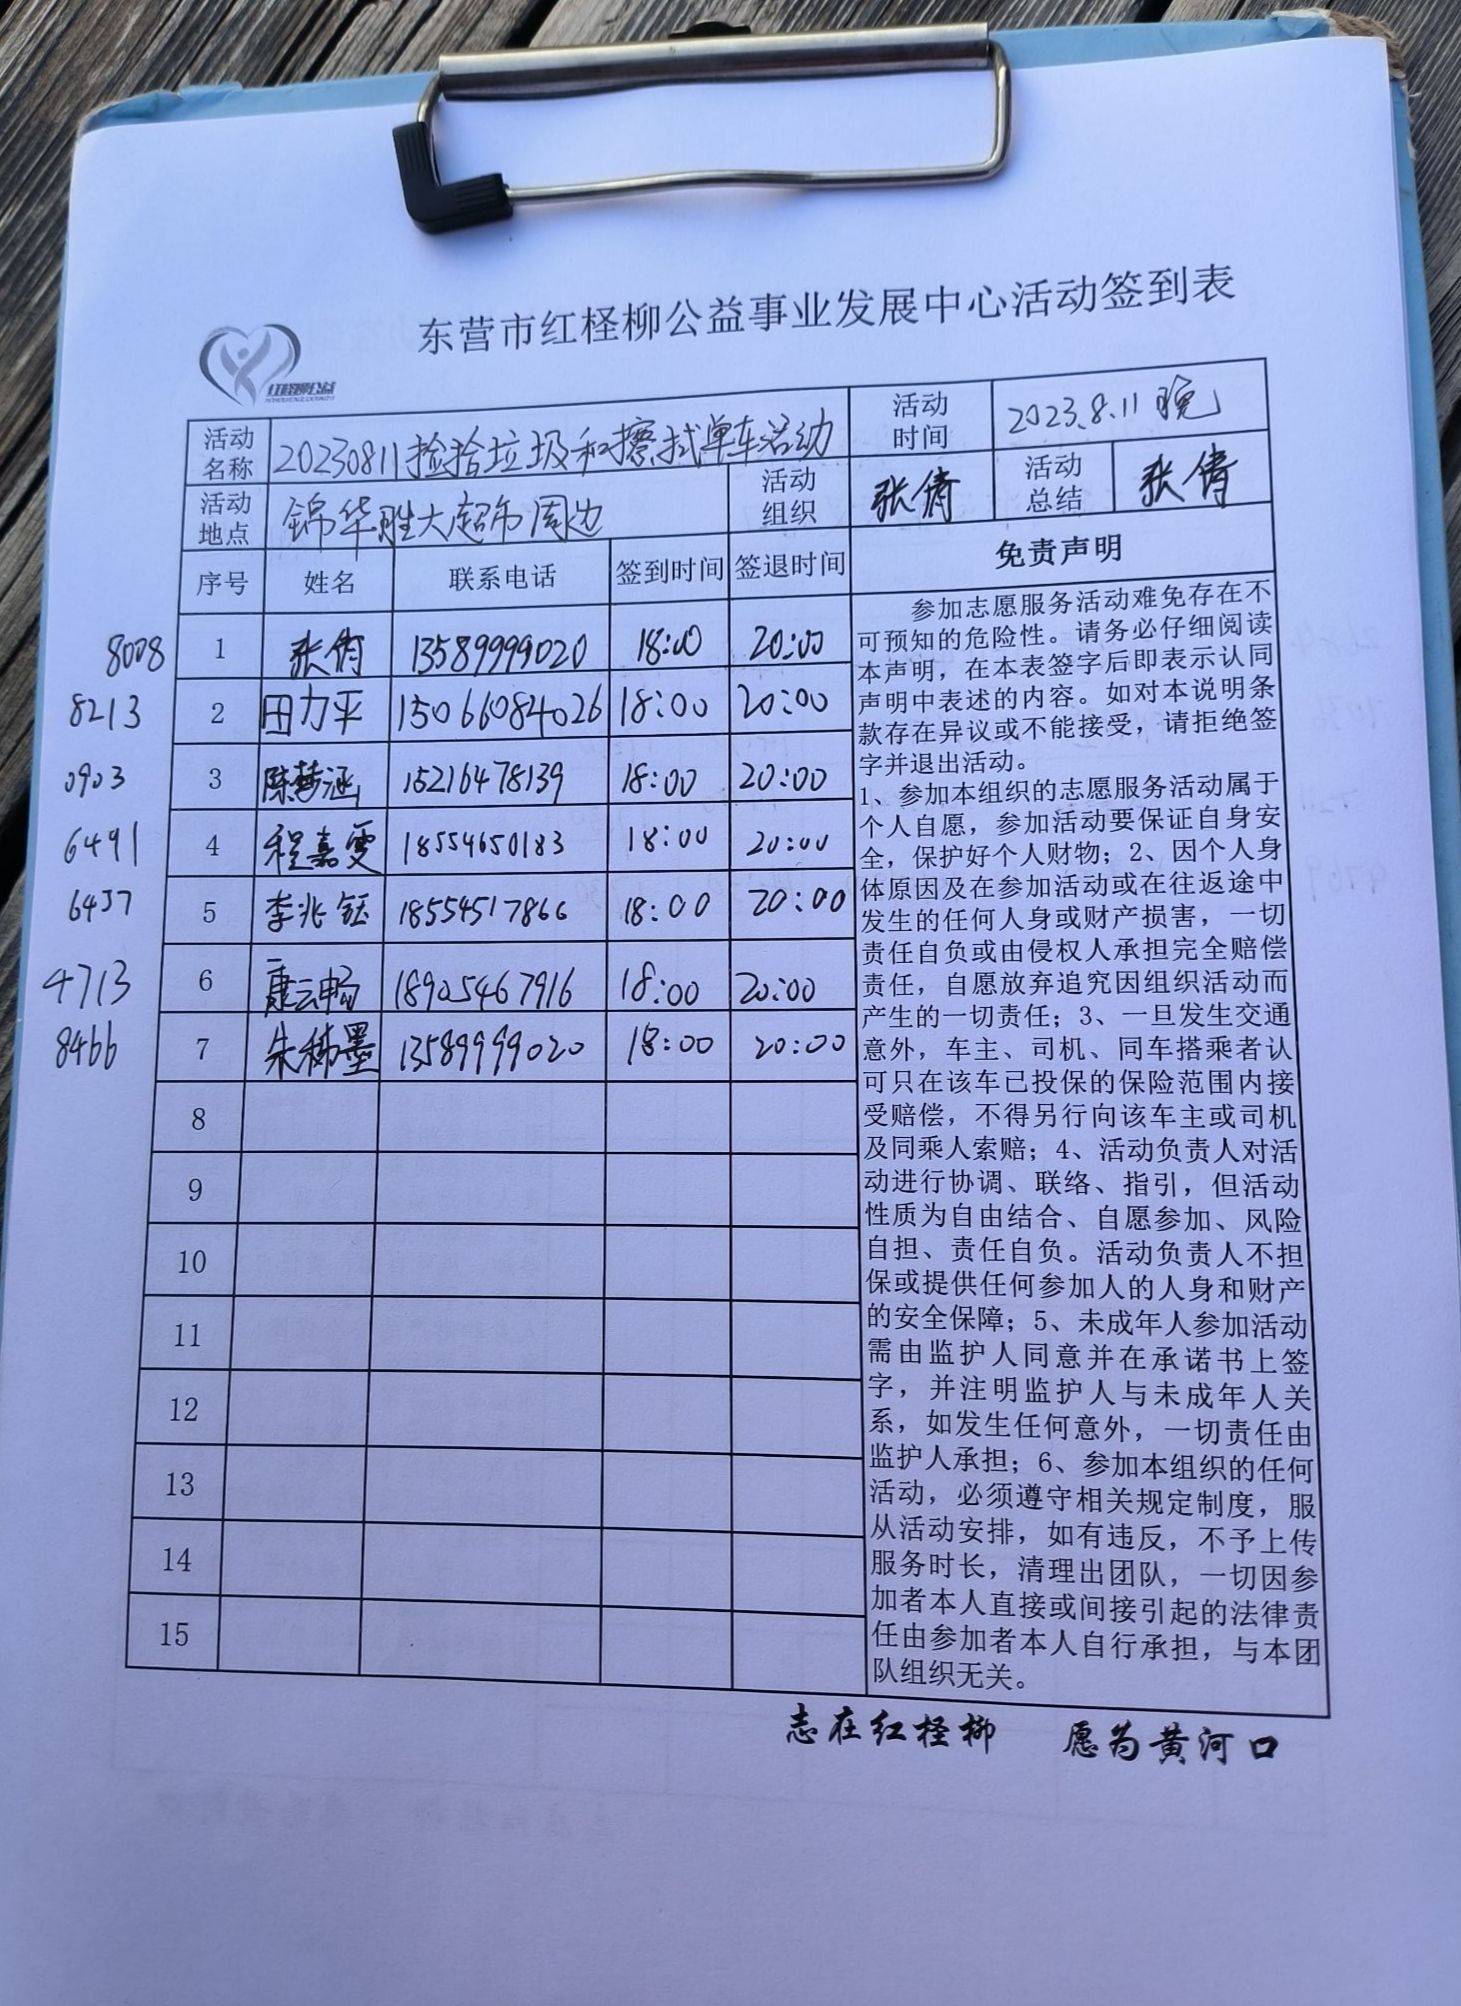 东营市红柽柳公益事业发展中心活动签到表
红柽柳公益
活动名称 20230811捡拾垃圾和擦拭单车活动 活动时间 2023.8.11晚
活动地点 锦华胜大超市周边 活动组织 张倩 活动总结 张倩
序号 姓名 联系电话 签到时间 签退时间 免责声明
8008 1 张倩 13589999020 18:00 20:00
8213 2 田力平 15066084026 18:00 20:00
0903 3 陈梦涵 15216478139 18:00 20:00
6491 4 程嘉雯 18554650183 18:00 20:00
6437 5 李兆钰 18554517866 18:00 20:00
4713 6 康云畅 18905467916 18:00 20:00
8466 7 朱秭墨 13589999020 18:00 20:00
8
9
10
11
12
13
14
15
参加志愿服务活动难免存在不
可预知的危险性。请务必仔细阅读
本声明，在本表签字后即表示认同
声明中表述的内容。如对本说明条
款存在异议或不能接受，请拒绝签
字并退出活动。
1、参加本组织的志愿服务活动属于
个人自愿，参加活动要保证自身安
全，保护好个人财物；2、因个人身
体原因及在参加活动或在往返途中
发生的任何人身或财产损害，一切
责任自负或由侵权人承担完全赔偿
责任，自愿放弃追究因组织活动而
产生的一切责任；3、一旦发生交通
意外，车主、司机、同车搭乘者认
可只在该车已投保的保险范围内接
受赔偿，不得另行向该车主或司机
及同乘人索赔；4、活动负责人对活
动进行协调、联络、指引，但活动
性质为自由结合、自愿参加、风险
自担、责任自负。活动负责人不担
保或提供任何参加人的人身和财产
的安全保障；5、未成年人参加活动
需由监护人同意并在承诺书上签
字，并注明监护人与未成年人关
系，如发生任何意外，一切责任由
监护人承担；6、参加本组织的任何
活动，必须遵守相关规定制度，服
从活动安排，如有违反，不予上传
服务时长，清理出团队，一切因参
加者本人直接或间接引起的法律责
任由参加者本人自行承担，与本团
队组织无关。
志在红柽柳 愿为黄河口